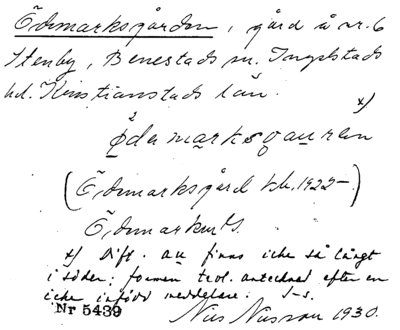 Ödemarksgården, gård å nr. 6
Stenby, Benestads sn. Ingelstads
hd. Kristianstads län.
x)
ødemarksgauren
(Ödemarksgård kb. 1922–)
Ödemarken
x) Dift. au finns icke så långt
i söder; formen trol. antecknad efter en
icke infödd meddelare. J-s.
Nr 5439
Nils Nilsson 1930.